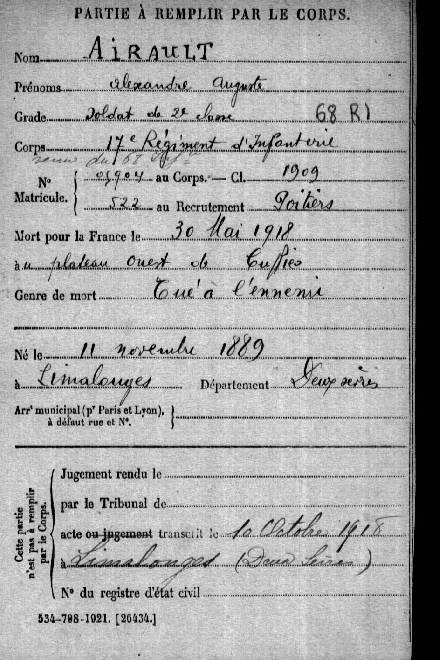 PARTIE À REMPLIR PAR LE CORPS.
Nom AIRAULT
Prénoms Alexandre Auguste
Grade Soldat de 2e classe 68 RI
Corps 17e Régiment d'Infanterie
venu du 68
No Matricule. 05904 au Corps. — Cl. 1909
522 au Recrutement Poitiers
Mort pour la France le 30 Mai 1918
à u plateau ouest de Cuffies
Genre de mort Tué à l'ennemi
Né le 11 novembre 1889
à Limalonges Département Deux sèvres
Arrt municipal (pr Paris et Lyon), à défaut rue et No.
Cette partie n'est pas à remplir par le Corps.
Jugement rendu le
par le Tribunal de
acte ou jugement transcrit le 10 Octobre 1918
à Limalonges (Deux Sèvres)
No du registre d'état civil
534-798-1921. [26434.]